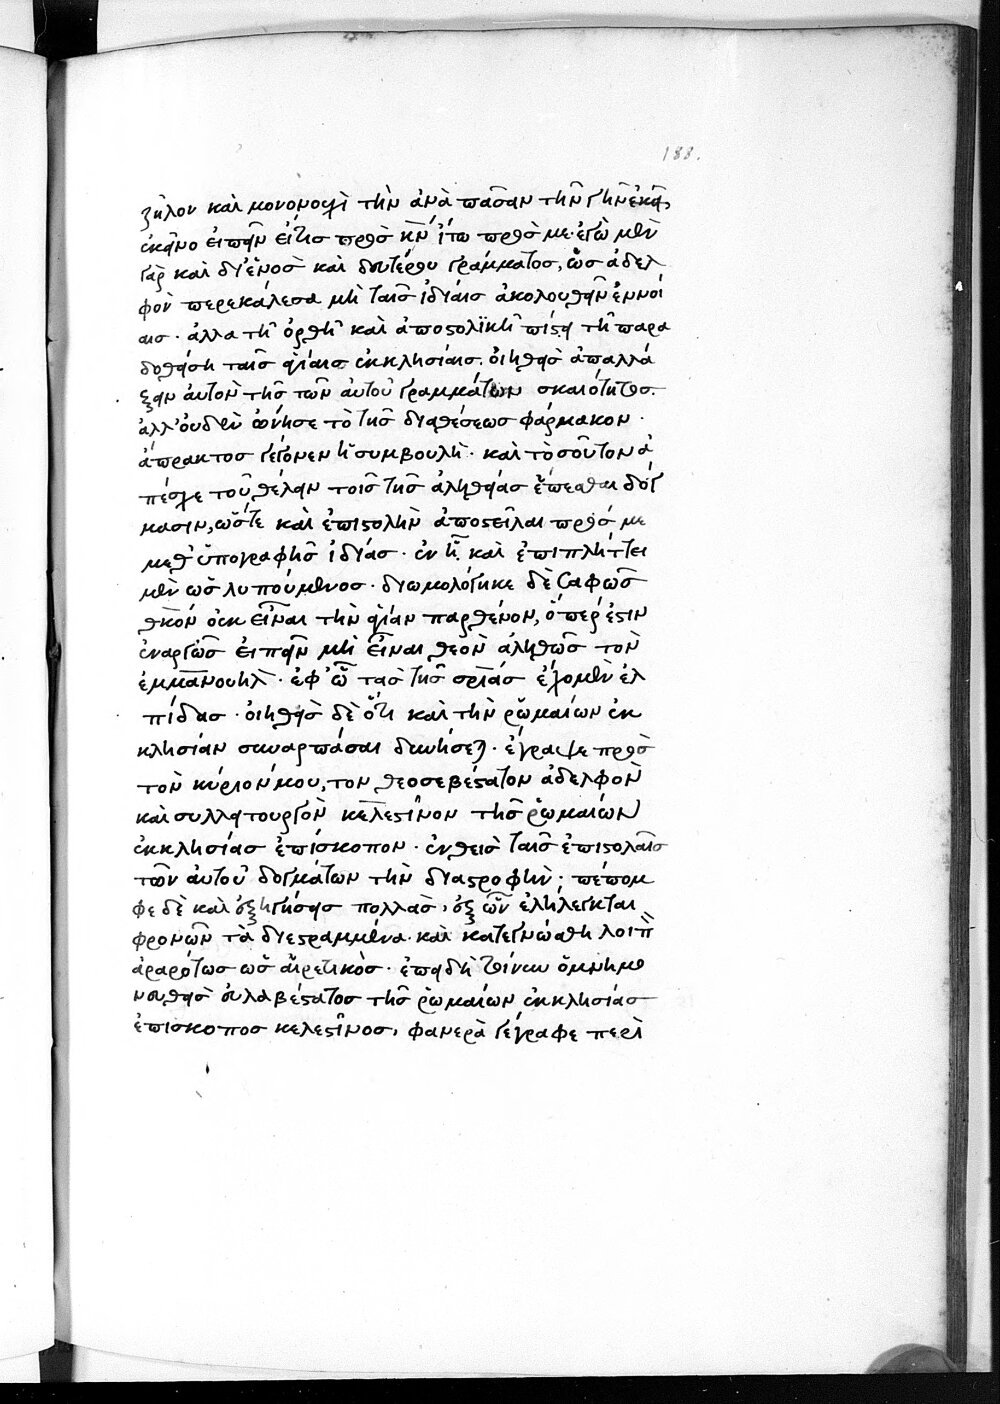 188.
ζῆλον καὶ μονονουχὶ τὴν ἀνὰ πᾶσαν τὴν γῆν
ἐκεῖνο εἰπεῖν εἴτις πρὸς κν ἴτω πρὸς με· ἐγὼ μὲν
γὰρ καὶ δι' ἑνὸς καὶ δευτέρου γράμματος, ὡς ἀδελ
φὸν περεκάλεσα μὴ ταῖς ἰδίαις ἀκολουθεῖν ἐννοί
αις· ἀλλα τῆ ὀρθῆ καὶ ἀποστολϊκῆ πίστει τῆ παρα
δοθείση ταῖς ἁγίαις ἐκκλησίαις. οἰηθεὶς ἀπαλλά
ξειν ἀυτὸν τῆς τῶν ἀυτοῦ γραμμάτων σκαιότητος.
ἀλλ' ὀυδὲν ὤνησε τὸ τῆς διαθέσεως φάρμακον·
ἄπρακτος γέγονεν ἡ συμβουλὴ· καὶ τοσοῦτον ἀ
πέσχε τοῦ θέλειν τοῖς τῆς ἀληθείας ἕπεσθαι δόγ
μασιν, ὥστε καὶ ἐπιστολὴν ἀποστεῖλαι πρὸς με
μεθ' ὑπογραφῆς ἰδίας· ἐν ᾗ καὶ ἐπιπλήττει
μὲν ὡς λυπούμενος· διωμολόγηκε δὲ σαφῶς
θκὸν ὀυκ εἶναι τὴν ἁγίαν παρθένον, ὅπερ ἐστιν
ἐναργῶς ἐιπεῖν μὴ εἶναι θεὸν ἀληθῶς τὸν
ἐμμανουὴλ· ἐφ' ᾧ τὰς τῆς σρίας ἔχομεν ἐλ
πίδας· ὀιηθεὶς δὲ ὅτι καὶ τὴν ῥωμαίων ἐκ
κλησίαν συναρπάσαι δυνήσεται· ἔγραψε πρὸς
τὸν κύριόν μου, τον θεοσεβέστατον ἀδελφὸν
καὶ συλλειτουργὸν κελεστῖνον τῆς ῥωμαίων
ἐκκλησίας ἐπίσκοπον· ἐνθεὶς ταῖς ἐπιστολαῖς
τῶν ἀυτοῦ δογμάτων τὴν διαστροφὴν; πέπομ
φε δὲ καὶ ἐξηγήσεις πολλὰς, ἐξ ὧν ἐλήλεγκται
φρονῶν τὰ διεστραμμένα· καὶ κατεγνώσθη λοιπ
ἀραρότως ὡς ἁιρετικὸς· ἐπειδὴ τοίνυν ὁ μνημο
νευθεὶς ἐυλαβέστατος τῆς ῥωμαίων ἐκκλησίας
ἐπίσκοπος κελεστῖνος, φανερὰ γέγραφε περὶ